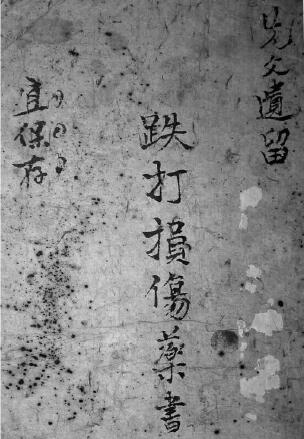 先父遺留
跌打損傷藥書
宜保存